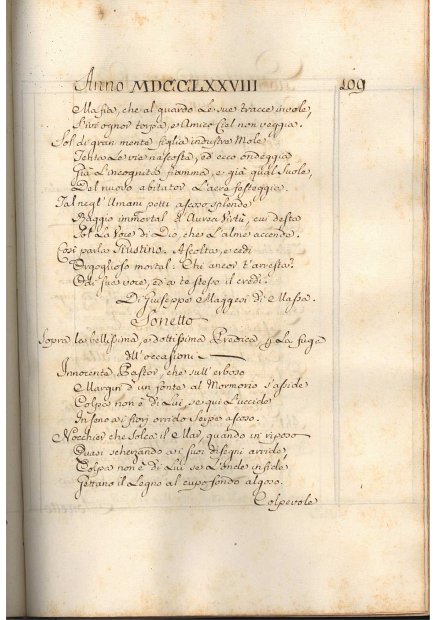 Anno MDCCLXXVIII 109
Ma sta, che al guardo Le sue tracce invole,
S'ive ognor torpa, e Amico Ciel non veggia.
Sol di gran mente figlia industre Mole
Tenta Le vie nascosta, ed ecco ondeggia
Già L'incognita fiamma, e già qual suole,
Del nuovo abitator L'aere festeggia.
Tal negl' Umani petti ascoso splende
Raggio immortal d'Aurea Virtù, cui desta
Sol La Voce di Dio, che L'alme accende.
Così parla Giustino. Ascolta, e cedi
Orgoglioso mortal. Chi ancor t'arresta?
Odi sue voce, ed a te stesso il credi.
Di Giuseppe Maggesi di Massa.
Sonetto
Sopra la bellissima, e dottissima Predica p. La fuga
dell'occasioni
Innocente Pastor, che sull' erboso
Margin d'un fonte al Mormorio s'asside
Colpa non è di Lui, se qui L'uccide
Infono ai fiori orrido Serpe ascoso.
Nocchier che Solca il Mar, quando in riposo
Quasi scherzando ai suoi disegni arride,
Colpa non è di Lui se L'onde infide
Gettano il Legno al cupo fondo algoso.
Colpevole